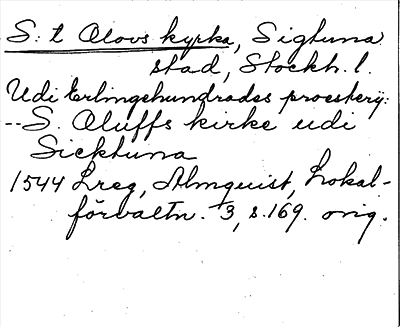 S:t Olovs kyrka, Sigtuna
stad, Stockh. l.
Udi Erlingehundrades proesterij:
--S. Oluffs kirke udi
Sicktuna
1544 Lreg, Almquist, Lokal-
förvaltn. 3, s. 169. orig.